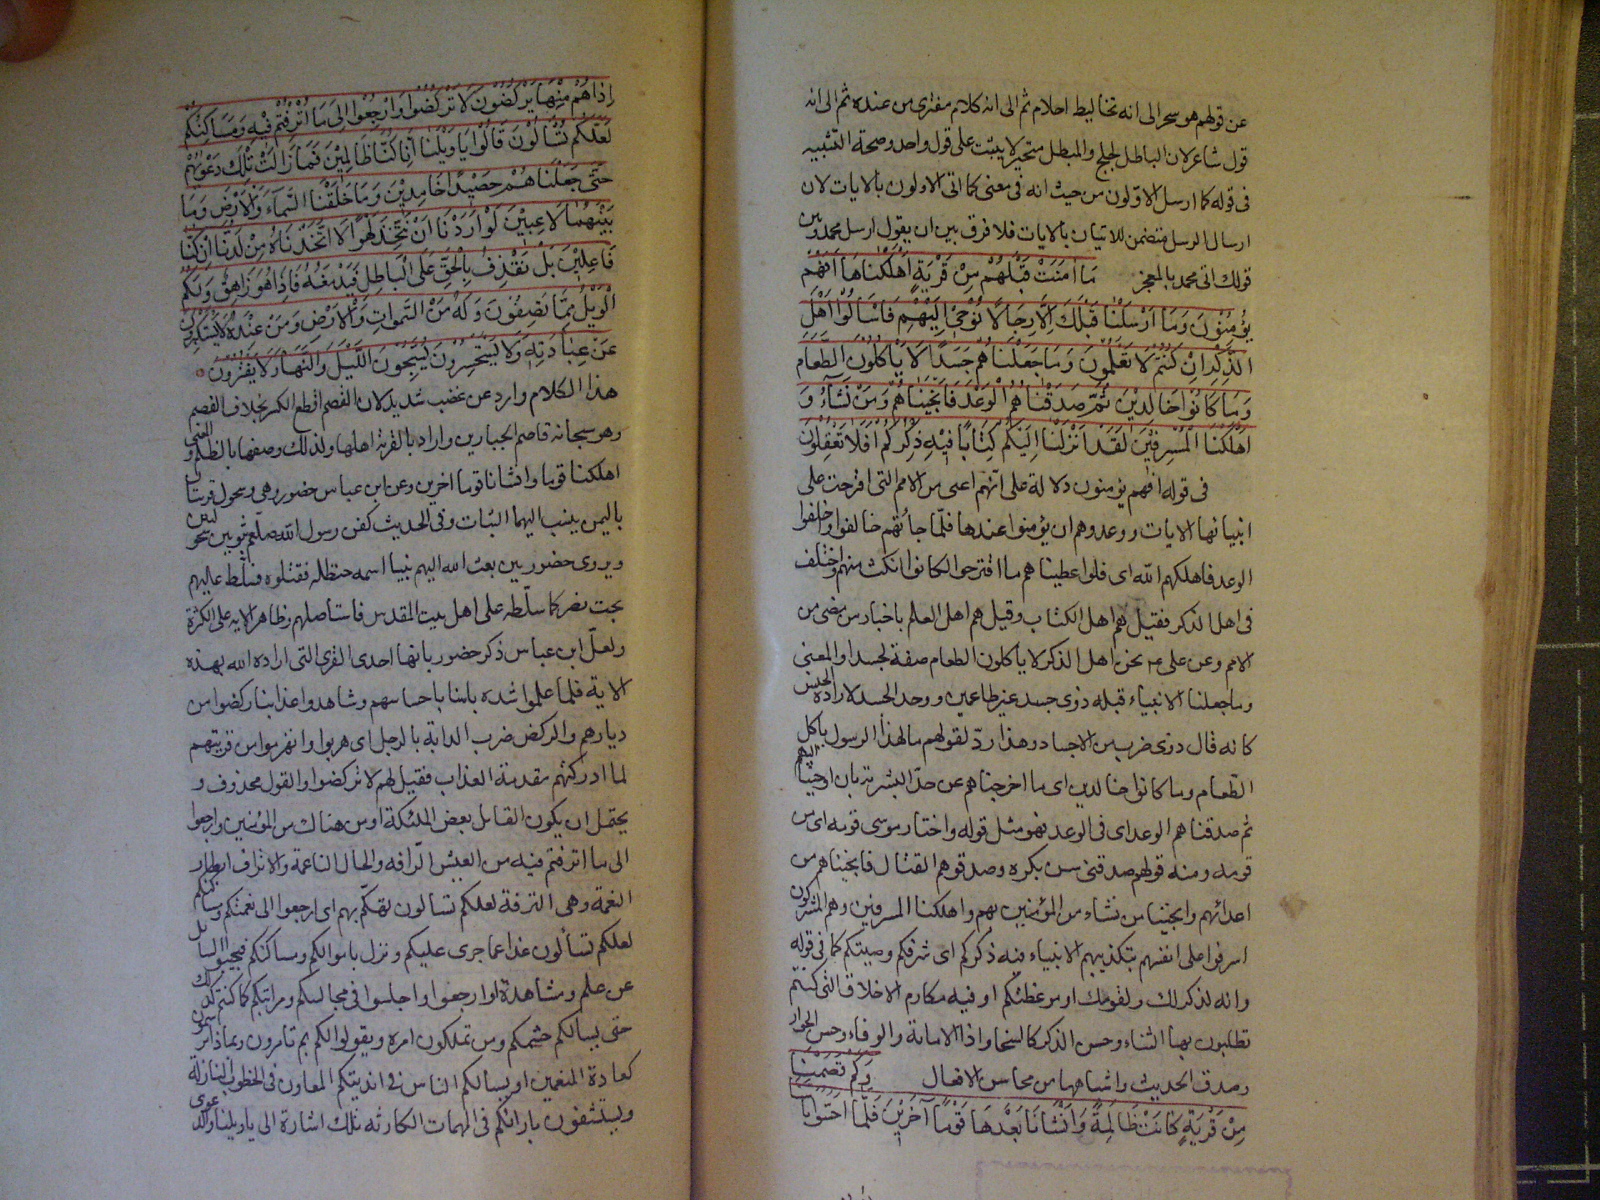 عن قولهم هو سحر الى انه تخاليط احلام ثم الى انه كلام مفترى من عنده ثم الى انه
قول شاعر لان الباطل لجلج والمبطل متحير لا يثبت على قول واحد وصحة التشبيه
فى قوله كما ارسل الاولون من حيث انه فى معنى كما اتى الاولون بالايات لان
ارسال الرسل متضمن للاتيان بالايات فلا فرق بين ان يقول ارسل محمد وبين
قولك اتى محمد بالمعجز مَا اٰمَنَتْ قَبْلَهُمْ مِنْ قَرْيَةٍ اَهْلَكْنَاهَا اَفَهُمْ
يُؤْمِنُونَ وَمَا اَرْسَلْنَا قَبْلَكَ اِلَّا رِجَالًا نُوْحٰى اِلَيْهِمْ فَاسْأَلُوا اَهْلَ
الذِّكْرِ اِنْ كُنْتُمْ لَا تَعْلَمُونَ وَمَا جَعَلْنَاهُمْ جَسَدًا لَا يَأْكُلُونَ الطَّعَامَ
وَمَا كَانُوا خَالِدِيْنَ ثُمَّ صَدَقْنَاهُمُ الْوَعْدَ فَاَنْجَيْنَاهُمْ وَمَنْ نَشَاءُ وَ
اَهْلَكْنَا الْمُسْرِفِيْنَ لَقَدْ اَنْزَلْنَا اِلَيْكُمْ كِتَابًا فِيْهِ ذِكْرُكُمْ اَفَلَا تَعْقِلُونَ
فى قوله افهم يؤمنون دلالة على انهم اعتى من الامم التى اقترحت على
انبيائها الايات ووعدوهم ان يؤمنوا عندها فلما جاءتهم خالفوا واخلفوا
الوعد فاهلكهم الله اى فلو اعطيناهم ما اقترحوا لكانوا انكث منهم واختلف
فى اهل الذكر فقيل هم اهل الكتاب وقيل هم اهل العلم باخبار من مضى من
الامم وعن على ع نحن اهل الذكر لا يأكلون الطعام صفة لجسدا والمعنى
وما جعلنا الانبياء قبله ذوى جسد غير طاعمين ووحد الجسد لارادة الجنس
كانه قال ذوى ضرب من الاجساد وهذا رد لقولهم ما لهذا الرسول يأكل
الطعام وما كانوا خالدين اى ما اخرجناهم عن حد البشرية بان اوحينا اليهم
ثم صدقناهم الوعد اى فى الوعد فهو مثل قوله واختار موسى قومه اى من
قومه ومنه قولهم صدقنى سن بكره وصدقوهم القتال فانجيناهم من
اعدائهم وانجينا من نشاء من المؤمنين بهم واهلكنا المسرفين وهم المشركون
اسرفوا على انفسهم بتكذيبهم الانبياء فيه ذكركم اى شرفكم وصيتكم كما فى قوله
وانه لذكر لك ولقومك او موعظتكم او فيه مكارم الاخلاق التى كنتم
تطلبون بها الثناء وحسن الذكر كالسخا واداء الامانة والوفاء وحسن الجوار
وصدق الحديث واشباهها من محاسن الافعال وَكَمْ قَصَمْنَا
مِنْ قَرْيَةٍ كَانَتْ ظَالِمَةً وَاَنْشَأْنَا بَعْدَهَا قَوْمًا آخَرِيْنَ فَلَمَّا اَحَسُّوا بَأْسَنَا
اِذَا هُمْ مِنْهَا يَرْكُضُونَ لَا تَرْكُضُوا وَارْجِعُوا اِلٰى مَا اُتْرِفْتُمْ فِيْهِ وَمَسَاكِنِكُمْ
لَعَلَّكُمْ تُسْأَلُونَ قَالُوا يَا وَيْلَنَا اِنَّا كُنَّا ظَالِمِيْنَ فَمَا زَالَتْ تِلْكَ دَعْوٰيهُمْ
حَتّٰى جَعَلْنَاهُمْ حَصِيْدًا خَامِدِيْنَ وَمَا خَلَقْنَا السَّمَاءَ وَالْاَرْضَ وَمَا
بَيْنَهُمَا لَاعِبِيْنَ لَوْ اَرَدْنَا اَنْ نَتَّخِذَ لَهْوًا لَاتَّخَذْنَاهُ مِنْ لَدُنَّا اِنْ كُنَّا
فَاعِلِيْنَ بَلْ نَقْذِفُ بِالْحَقِّ عَلَى الْبَاطِلِ فَيَدْمَغُهُ فَاِذَا هُوَ زَاهِقٌ وَلَكُمُ
الْوَيْلُ مِمَّا تَصِفُونَ وَلَهُ مَنْ فِى السَّمٰوَاتِ وَالْاَرْضِ وَمَنْ عِنْدَهُ لَا يَسْتَكْبِرُونَ
عَنْ عِبَادَتِهِ وَلَا يَسْتَحْسِرُونَ يُسَبِّحُونَ اللَّيْلَ وَالنَّهَارَ لَا يَفْتُرُونَ
هذا الكلام وارد عن غضب شديد لان القصم افظع الكسر بخلاف الفصم
وهو سبحانه قاصم الجبارين واراد بالقرية اهلها ولذلك وصفها بالظلم والمعنى
اهلكنا قوما وانشأنا قوما اخرين وعن ابن عباس حضور وهى وسحول قريتان
باليمن ينسب اليهما الثياب وفى الحديث كفن رسول الله صلعم ثوبين سحوليين
ويروى حضورين بعث الله اليهم نبيا اسمه حنظلة فقتلوه فسلط عليهم
بخت نصر كما سلطه على اهل بيت المقدس فاستأصلهم وظاهر الاية على الكثرة
ولعل ابن عباس ذكر حضور بانها احدى القرى التى اراده الله بهذه
الاية فلما علموا شدة بأسنا باحساسهم وشاهدوا عذابنا ركضوا من
ديارهم والركض ضرب الدابة بالرجل اى هربوا وانهزموا من قريتهم
لما ادركتهم مقدمة العذاب فقيل لهم لا تركضوا والقول محذوف و
يحتمل ان يكون القائل بعض الملئكة او من هناك من المؤمنين وارجعوا
الى ما اترفتم فيه من العيش الرافه والحال الناعمة والاتراف ابطار
النعمة وهى الترفة لعلكم تسألون تهكم بهم اى ارجعوا الى نعمتكم ومساكنكم
لعلكم تسألون غدا عما جرى عليكم ونزل باموالكم ومساكنكم فتجيبوا السائل
عن علم ومشاهدة او ارجعوا واجلسوا فى مجالسكم ومراتبكم كما كنتم كذلك
حتى يسألكم حشمكم ومن تملكون امره ويقولوا لكم بم تأمرون وماذا ترسمون
كعادة المنعمين او يسألكم الناس فى انديتكم المعاون فى الخطوب النازلة
ويستشفون بارائكم فى المهمات الكارثه تلك اشارة الى يا ويلنا والدعوى